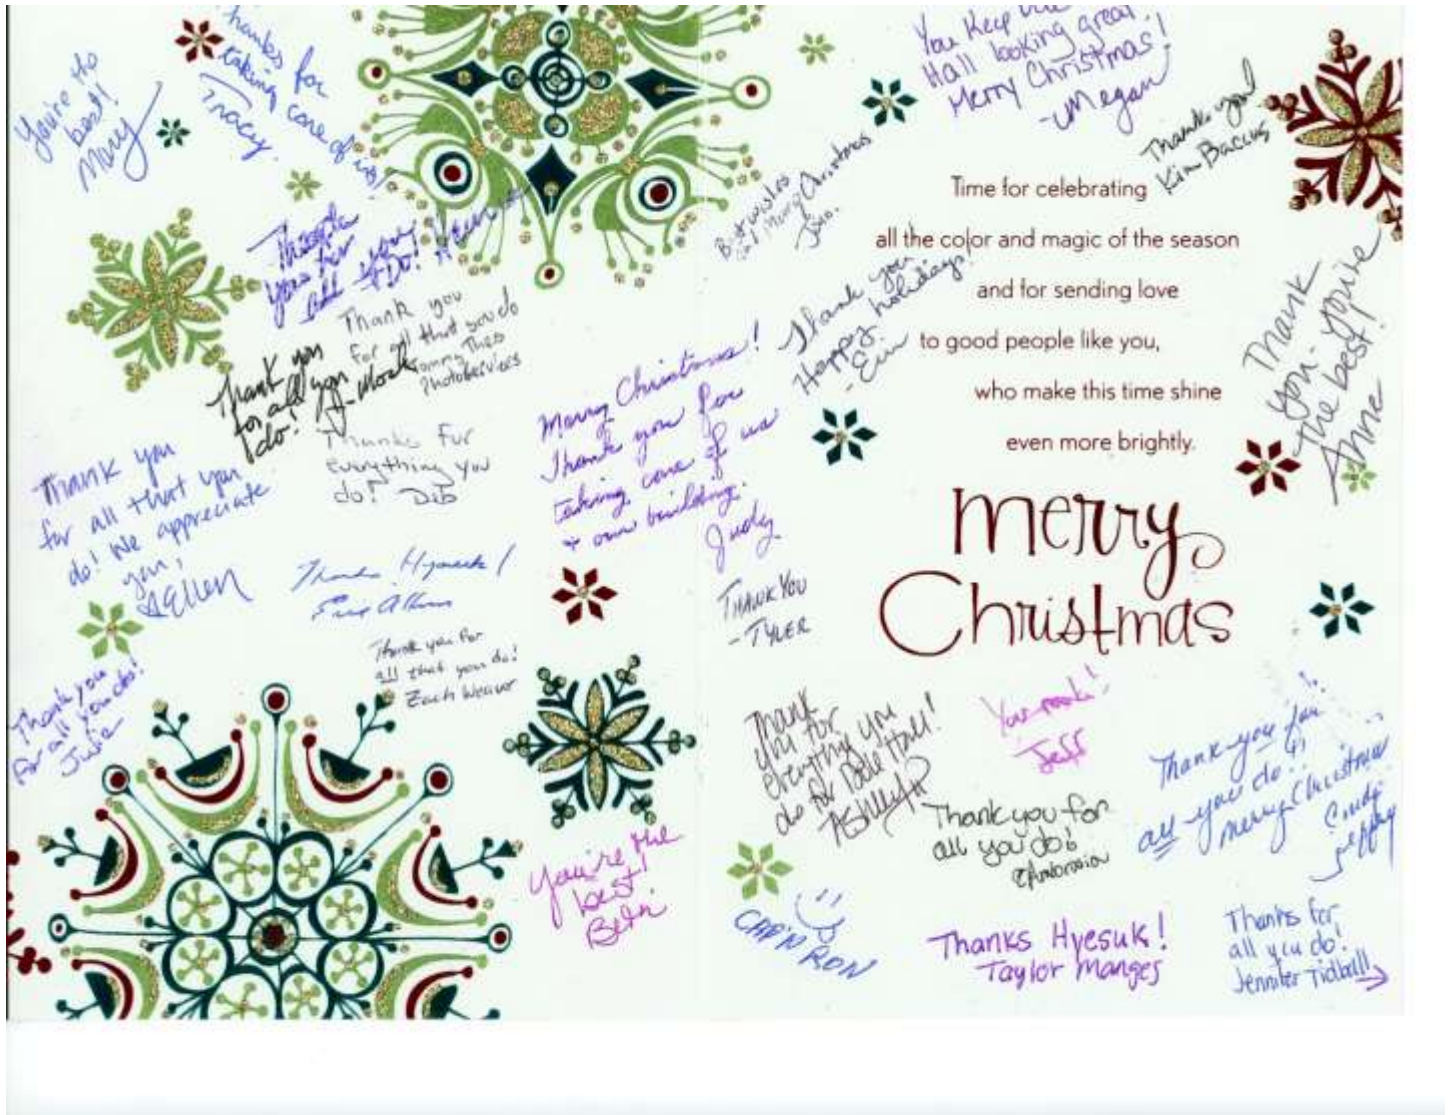 You're the
best!
Mary
Thanks for
taking care of us!
Tracy.
Thank
you for
all you
do!
Thank you
for all that you do
Tommy Theis
Photoservices
Thank you
for all you
do!
Thanks For
Everything You
do! Deb
Thank you
for all that you
do! We appreciate
you,
Ellen
Thanks Hyesuk!
Thank you for
all that you do!
Zach Weaver
Thank you
for all you do!
Julie
Merry Christmas!
Thank you for
taking care of us
+ our building.
Judy
You're the
best!
Beth
You Keep
Hall looking great!
Merry Christmas!
-Megan
Thank you!
Kim Baccus
Best wishes
and Merry Christmas
Thank you
Happy holidays!
- Erin
Time for celebrating
all the color and magic of the season
and for sending love
to good people like you,
who make this time shine
even more brightly.
Merry
Christmas
Thank
you- you're
the best!
Anne
THANK YOU
- TYLER
Thank
you for
everything you
do for Dole Hall!
You rock!
Jeff
Thank you for
all you do!
Merry Christmas
Cindy
Thank you for
all you do!
CAP'N RON
Thanks Hyesuk!
Taylor Manges
Thanks for
all you do!
Jennifer Tidball